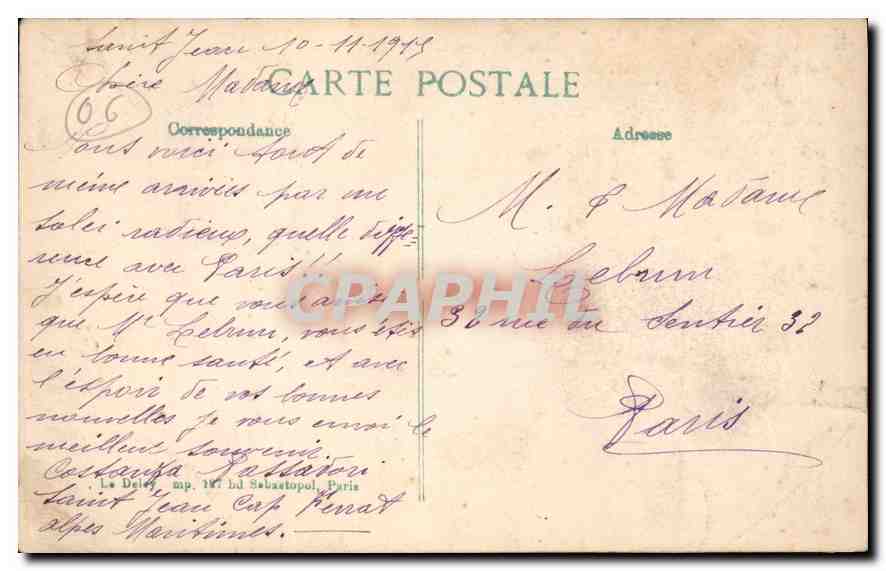 Saint Jean 10-11-1915
Chère Madame
CARTE POSTALE
06
Correspondance
Nous voici tout de
même arrivées par un
solei radieux, quelle diffe-
rence avec Paris!!
J'espère que vous ainsi
que Mr Lebrun, vous êtes
en bonne santé, et avec
l'espoir de vos bonnes
nouvelles je vous envoi le
meilleur souvenir
Costanza Passadori
Le Deley, imp. 127 bd Sebastopol, Paris
Saint Jean Cap Ferrat
alpes Maritimes.
Adresse
M. & Madame
Lebrun
32 rue du Sentier 32
Paris
CPAPHIL